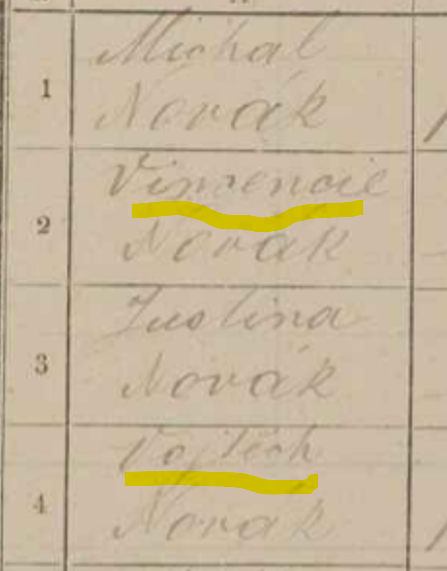 1
Michal
Novák
2
Vincencie
Novák
3
Justina
Novák
4
Vojtěch
Novák